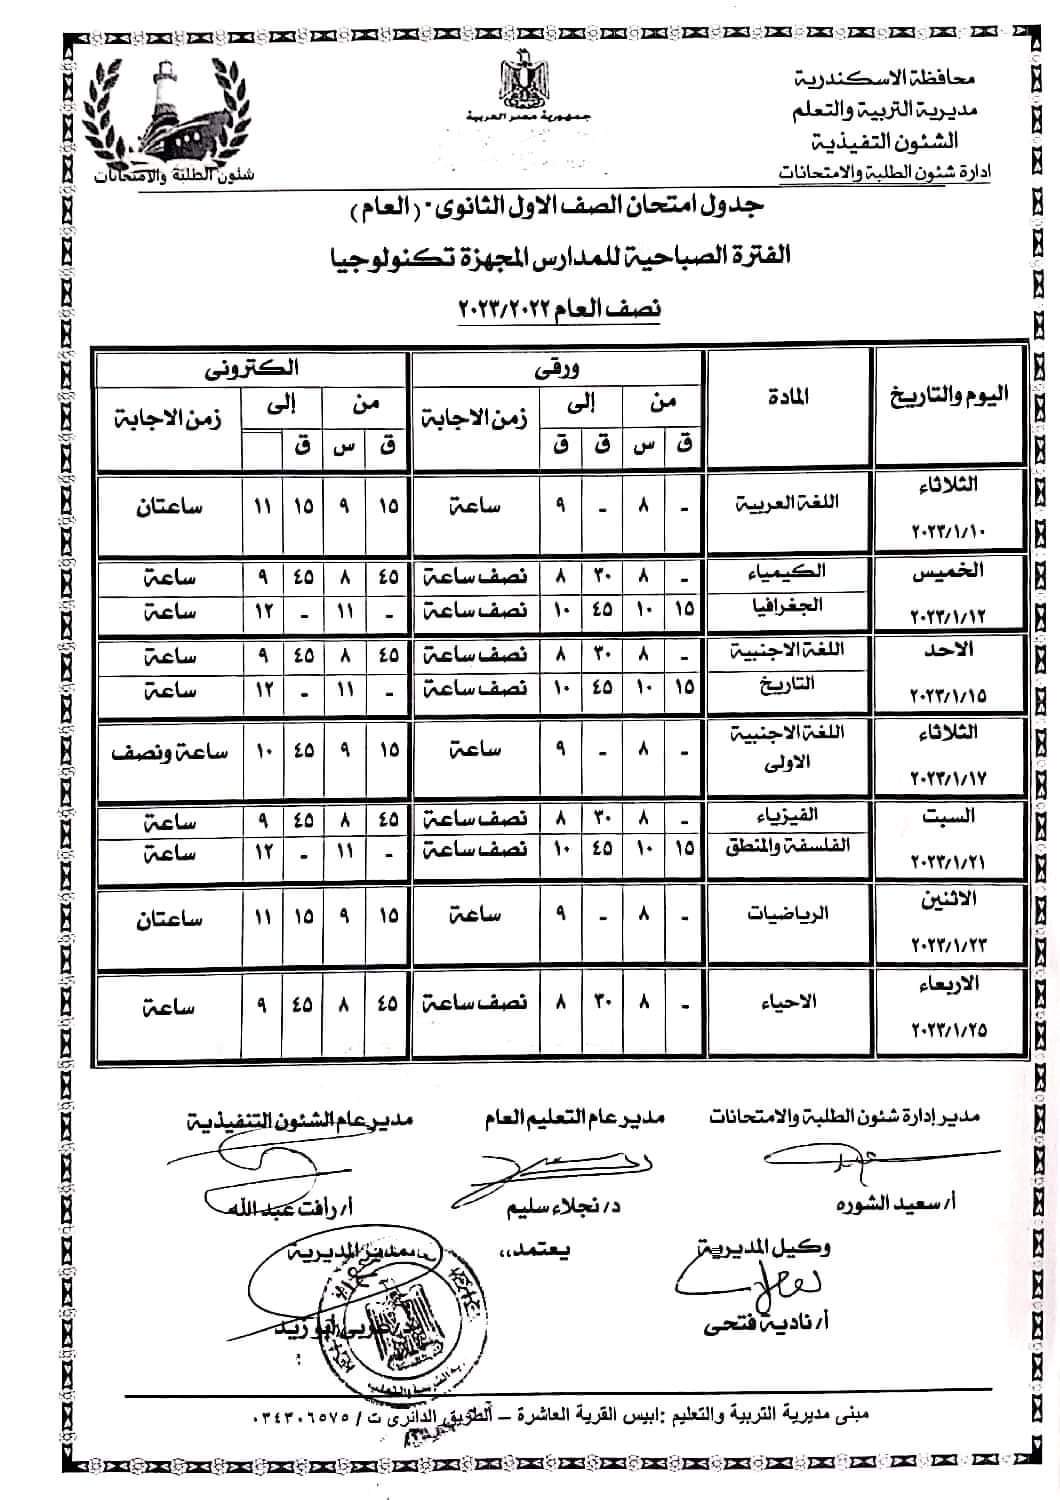 محافظة الاسكندرية
مديرية التربية والتعلم
الشئون التفيذية
ادارة شئون الطلبة والامتحانات
جمهورية مصر العربية
شئون الطلبة والامتحانات
جدول امتحان الصف الاول الثانوى - (العام)
الفترة الصباحية للمدارس المجهزة تكنولوجيا
نصف العام ٢٠٢٣/٢٠٢٢
اليوم والتاريخ المادة ورقى الكترونى
من إلى زمن الاجابة من إلى زمن الاجابة
ق س ق ق ق س ق
الثلاثاء ٢٠٢٣/١/١٠ اللغة العربية - ٨ - ٩ ساعة ١٥ ٩ ١٥ ١١ ساعتان
الخميس ٢٠٢٣/١/١٢ الكيمياء - ٨ ٣٠ ٨ نصف ساعة ٤٥ ٨ ٤٥ ٩ ساعة
الجغرافيا ١٥ ١٠ ٤٥ ١٠ نصف ساعة - ١١ - ١٢ ساعة
الاحد ٢٠٢٣/١/١٥ اللغة الاجنبية - ٨ ٣٠ ٨ نصف ساعة ٤٥ ٨ ٤٥ ٩ ساعة
التاريخ ١٥ ١٠ ٤٥ ١٠ نصف ساعة - ١١ - ١٢ ساعة
الثلاثاء ٢٠٢٣/١/١٧ اللغة الاجنبية الاولى - ٨ - ٩ ساعة ١٥ ٩ ٤٥ ١٠ ساعة ونصف
السبت ٢٠٢٣/١/٢١ الفيزياء - ٨ ٣٠ ٨ نصف ساعة ٤٥ ٨ ٤٥ ٩ ساعة
الفلسفة والمنطق ١٥ ١٠ ٤٥ ١٠ نصف ساعة - ١١ - ١٢ ساعة
الاثنين ٢٠٢٣/١/٢٣ الرياضيات - ٨ - ٩ ساعة ١٥ ٩ ١٥ ١١ ساعتان
الاربعاء ٢٠٢٣/١/٢٥ الاحياء - ٨ ٣٠ ٨ نصف ساعة ٤٥ ٨ ٤٥ ٩ ساعة
مدير إدارة شئون الطلبة والامتحانات مدير عام التعليم العام مدير عام الشئون التنفيذية
أ/ سعيد الشوره د/ نجلاء سليم أ/ رأفت عبد الله
وكيل المديرية يعتمد،، مدير المديرية
أ/ نادية فتحى عربى ابوزيد
مبنى مديرية التربية والتعليم : ابيس القرية العاشرة – الطريق الدائرى ت / ٠٣٤٣٠٦٥٧٥